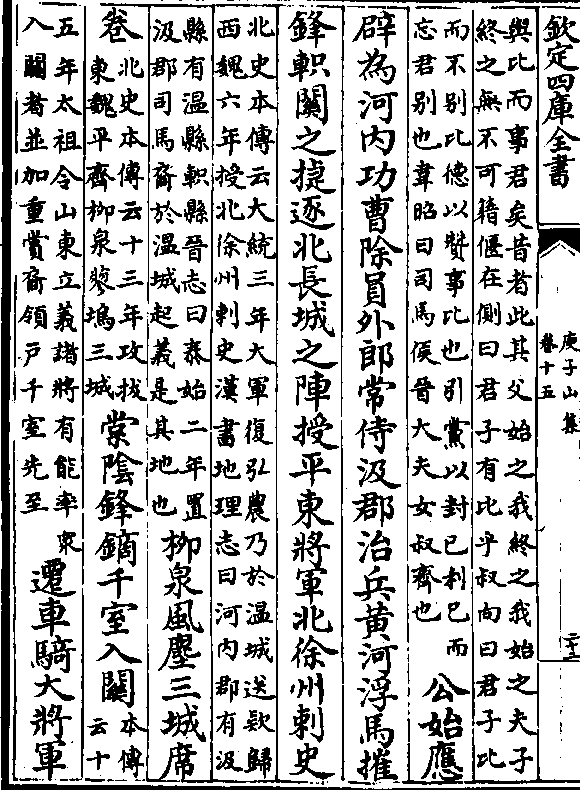 欽定四庫全書
庾子山集
卷十五
與比而事君矣昔者此其父始之我終之我始之夫子
終之無不可籍偃在側曰君子有比乎叔向曰君子比
而不别比德以贊事比也引黨以封已利己而
忘君别也韋昭曰司馬侯晉大夫女叔齊也
公始應
辟為河内功曹除員外郎常侍汲郡治兵黄河浮馬摧
鋒軹關之捷逐北長城之陣授平東將軍北徐州刺史
北史本傳云大統三年大軍復弘農乃於温城送款歸
西魏六年授北徐州刺史漢書地理志曰河内郡有汲
縣有温縣軹縣晉志曰泰始二年置
汲郡司馬裔於温城起義是其地也
柳泉風塵三城席
卷
北史本傳云十三年攻拔
東魏平齊柳泉蓼塢三城
棠陰鋒鏑千室入關
本傳
云十
五年太祖令山東立義諸將有能率衆
入關者並加重賞裔領户千室先至
遷車騎大將軍